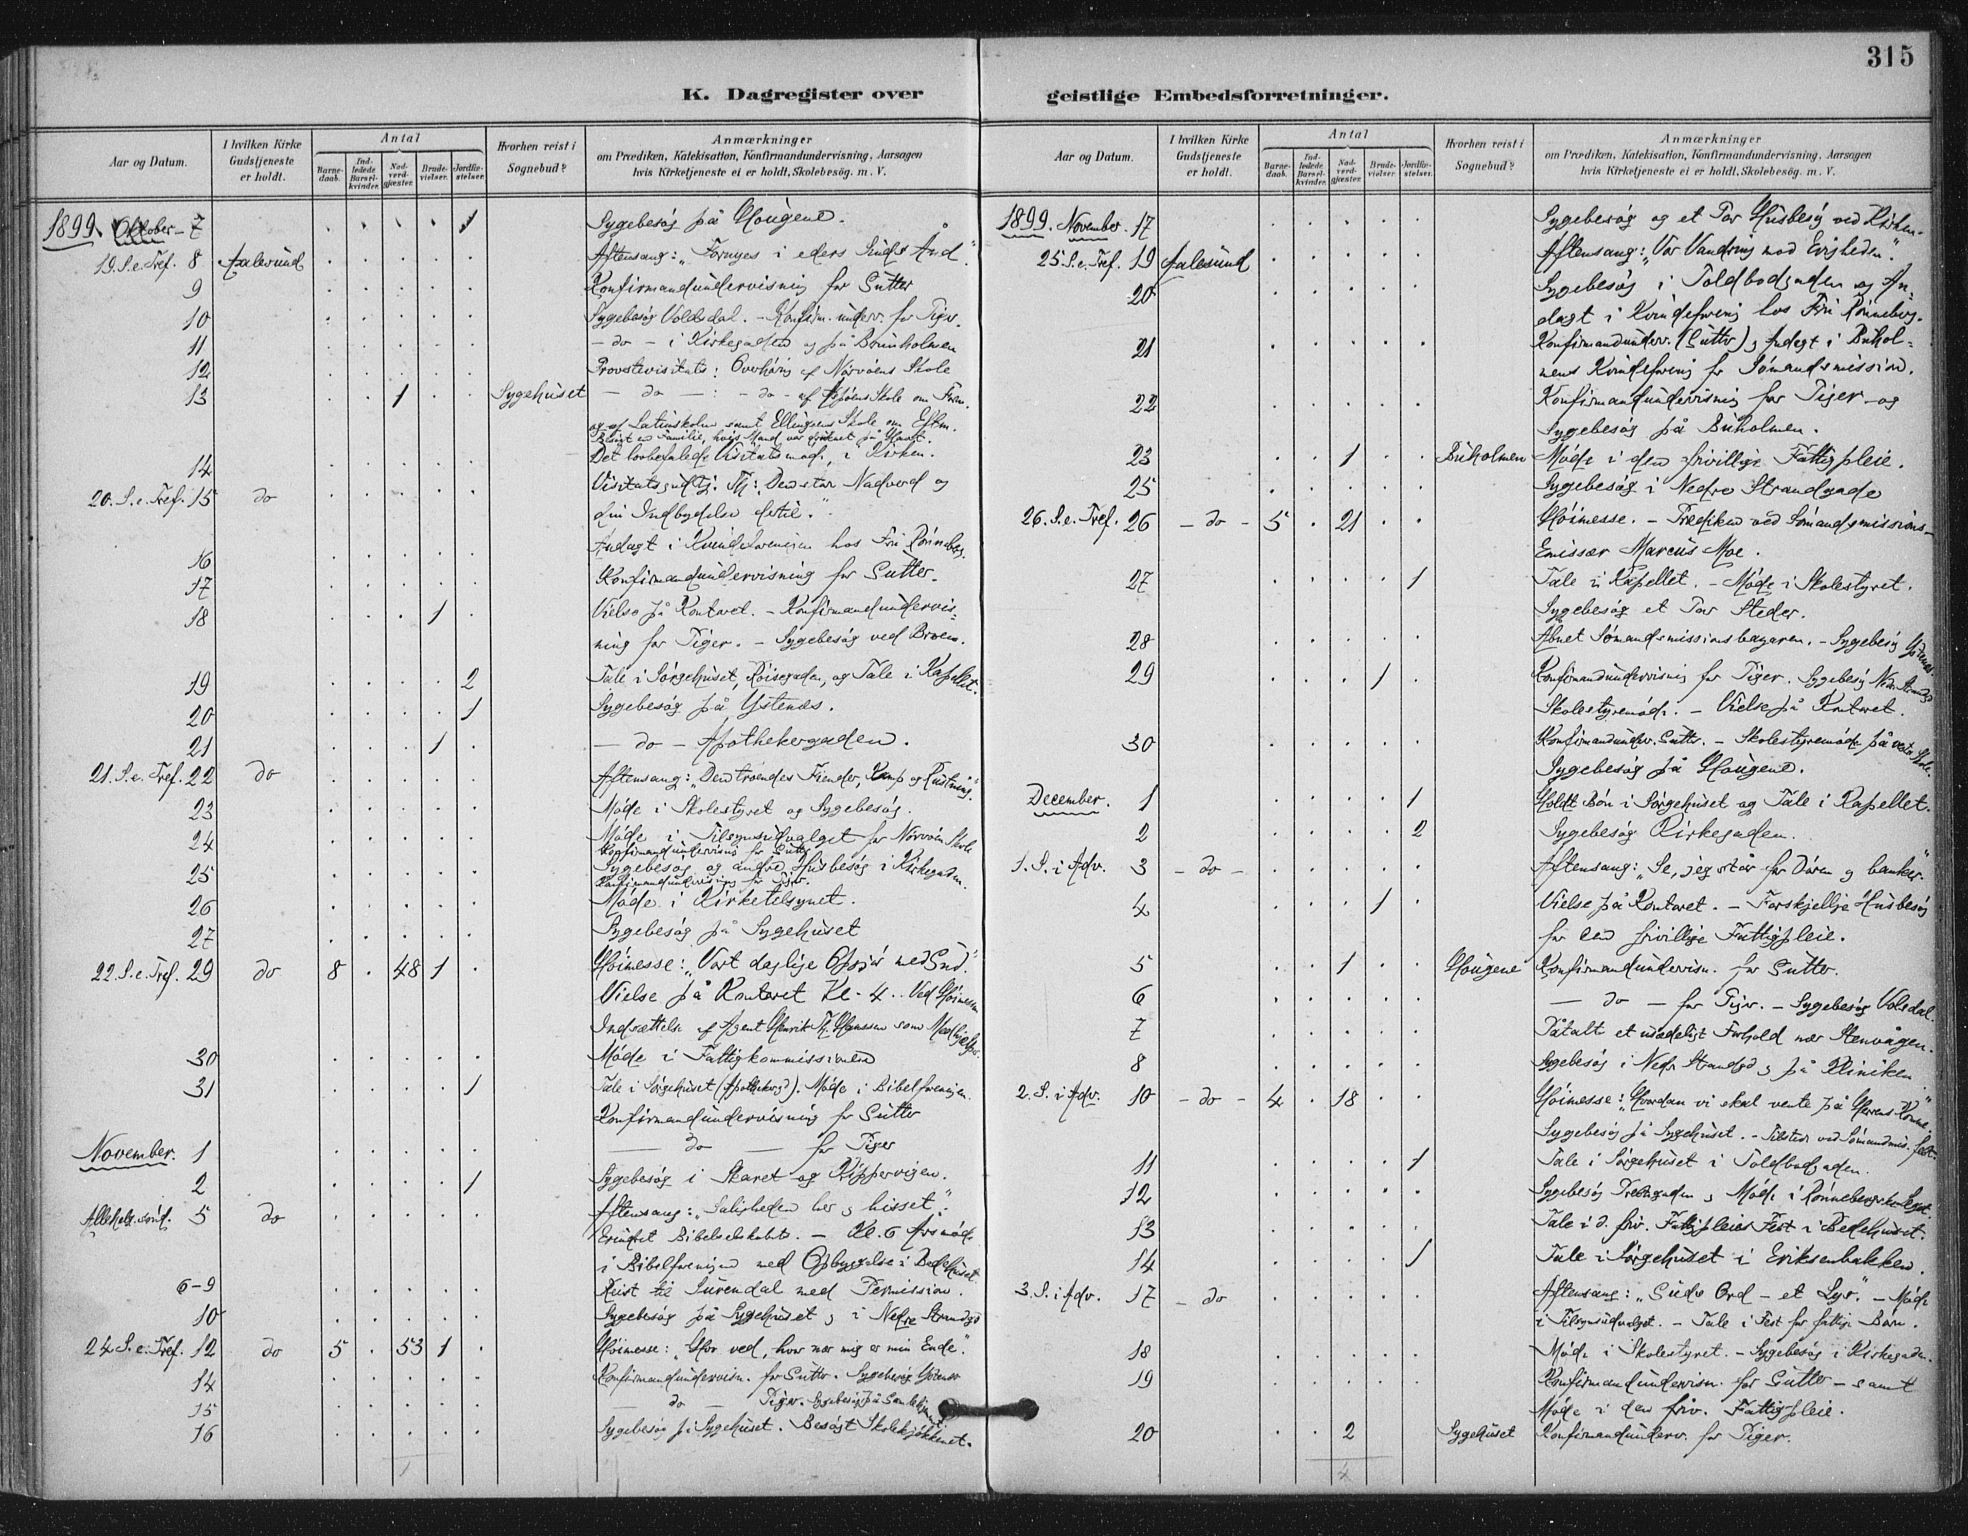 315
K. Dagregister over geistlige Embedsforretninger.
Aar og Datum.
I hvilken Kirke Gudstjeneste er holdt.
Antal
Barnedaab.
Indledede Barselkvinder.
Nadverdgjæster.
Brudevielser.
Jordfæstelser.
Hvorhen reist i Sognebud?
Anmærkninger
om Prædiken, Katekisation, Konfirmandundervisning, Aarsagen
hvis Kirketjeneste ei er holdt, Skolebesøg. m. V.
1899. Oktober - 7 . . . . 1 Sygebesøg på Hougene.
19. S. e. Tref. 8 Aalesund . . . . . Aftensang: „Fornyes i eders Sinds Ånd."
9 . . . . . Konfirmandundervisning for Gutter
10 . . . . . Sygebesøg Volsdal. - Konfirm. underv. for Piger.
11 . . . . . - do - i Kirkegaden og på Brunholmen
12 . . . . . Provstevisitats: Overhøring af Nørvøens Skole
13 . . 1 . . Sygehuset - do - : - do - af Aspøens Skole om Form.
og af Latinskolen samt Ellingsens Skole om Eftm.
14 . . . . . Det lovbefalede Visitatsmøde i Kirken.
20. S. e. Tref. 15 do . . . . . Visitatsgudtj. Tj: „Den store Nadverd og
din Indbydelse dertil."
16 . . . . . Andagt i Kvindeforeningen hos Fru Rönneberg.
17 . . . . . Konfirmandundervisning for Gutter.
18 . . . 1 . Vielse på Kontoret. - Konfirmandundervis-
ning for Piger. - Sygebesøg ved Broen.
19 . . . . 2 Tale i Sørgehuset, Röisegaden, og Tale i Kapellet.
20 . . . . 1 Sygebesøg på Ystenæs.
21 . . . 1 . - do - Apothekergaden.
21. S. e. Tref. 22 do . . . . . Aftensang: „Den troendes Fiender, Kamp og Rustning."
23 . . . . . Møde i Skolestyret og Sygebesøg.
24 . . . . . Møde i Tilsynsudvalget for Nørvøen Skole
Konfirmandundervisning for Gutter
25 . . . . . Sygebesøg og andre Husbesøg i Kirkegaden.
Konfirmandundervisning for Piger.
26 . . . . . Møde i Kirketilsynet.
27 . . . . . Sygebesøg på Sygehuset
22. S. e. Tref. 29 do 8 . 48 1 . Höimesse: „Vort daglige Opgjør med Gud."
Vielse på Kontoret Kl. 4. Ved Höimessen
Indsættelse af Agent Henrik Th. Hanssen som Medhjelper.
30 . . . . . Møde i Fattigkommissionen
31 . . . . 1 Tale i Sørgehuset (Apothekergd). Møde i Bibelforeningen.
Konfirmandundervisning for Gutter
November. 1 . . . . . - do - for Piger
2 . . . . 1 Sygebesøg i Skaret og Kippervigen.
Allehelg.sönd. 5 do . . . . . Aftensang: „Saligheden her og hisset".
Erindret Bibelselskabet. - Kl. 6 Årsmøde
i Bibelforeningen med Opbyggelse i Bedehuset
6-9 . . . . . Reist til Surendal med Permission.
10 . . . . . Sygebesøg på Sygehuset og i Nedre Strandgd
24 S. e. Tref. 12 do 5 . 53 1 . Höimesse: „Hvo ved, hvor nær mig er min Ende".
14 . . . . . Konfirmandundervisn. for Gutter. Sygebesøg Ystenæs
15 . . . . . - do - Piger.
16 . . . . . Sygebesøg på Sygehuset. Besøgt Skolekjøkkenet.
1899. November. 17 . . . . . Sygebesøg og et Par Husbesøg ved Kirken.
25. S. e. Tref. 19 Aalesund . . . . . Aftensang: „Vor Vandring mod Evigheden".
20 . . . . . Sygebesøg i Toldbodgaden og An-
dagt i Kvindeforening hos Fru Rönneberg.
21 . . . . . Konfirmandunderv. (Gutter) og Andagt i Buhol-
mens Kvindeforening for Sömandsmission.
22 . . . . . Konfirmandundervisning for Piger og
Sygebesøg på Buholmen.
23 . . 1 . . Buholmen Møde i den frivillige Fattigpleie.
25 . . . . . Sygebesøg i Nedre Strandgade
26. S. e. Tref. 26 - do - 5 . 21 . . Höimesse. - Prædiken ved Sömandsmissions-
Emissær Marcus Moe.
27 . . . . 1 Tale i Kapellet. - Møde i Skolestyret.
Sygebesøg et Par Steder.
28 . . . . . Åbnet Sömandsmissionsbazaren. - Sygebesøg Ystenæs.
29 . . . 1 . Konfirmandundervisning for Piger. Sygebesøg Nedr. Strandgd
Skolestyremøde. - Vielse på Kontoret.
30 . . . . . Konfirmandunderv. Gutter. - Skolestyremøde på vestre Skole.
Sygebesøg på Hougene.
December. 1 . . . . 1 Holdt Bön i Sørgehuset og Tale i Kapellet.
2 . . . . 2 Sygebesøg Kirkegaden.
1. S. i Adv. 3 - do - . . . . . Aftensang: „Se, jeg står for Dören og banker"
4 . . . 1 . Vielse på Kontoret. - Forskjellige Husbesøg
for den frivillige Fattigpleie.
5 . . 1 . . Hougene Konfirmandundervisn. for Gutter.
6 . . . . . - do - for Piger. - Sygebesøg Volsdal.
7 . . . . . Påtalt et usædeligt Forhold nær Stenvågen.
8 . . . . . Sygebesøg i Nedr Strandgd og på Kliniken
2. S. i Adv. 10 - do - 4 . 18 . . Höimesse: „Hvordan vi skal vente på Herrens Komme"
Sygebesøg på Sygehuset. - Tilsted ved Sömandsmis. fest.
11 . . . . 1 Tale i Sørgehuset i Toldbodgaden.
12 . . . . . Sygebesøg og Møde i Rönnebergske Legat.
13 . . . . . Tale i d. friv. Fattigpleies Fest i Bedehuset.
14 . . . . 1 Tale i Sørgehuset i Eriksenbakken.
3. S. i Adv. 17 - do . . . . . Aftensang: „Guds Ord - et Lys". - Møde
i Tilsynsudvalget. - Tale i Fest for fattige Børn.
18 . . . . . Møde i Skolestyret. - Sygebesøg i Kirkegaden.
19 . . . . . Konfirmandundervisn. for Gutter - samt
Møde i den friv. Fattigpleie.
20 . . 2 . . Sygehuset Konfirmandunderv. for Piger.